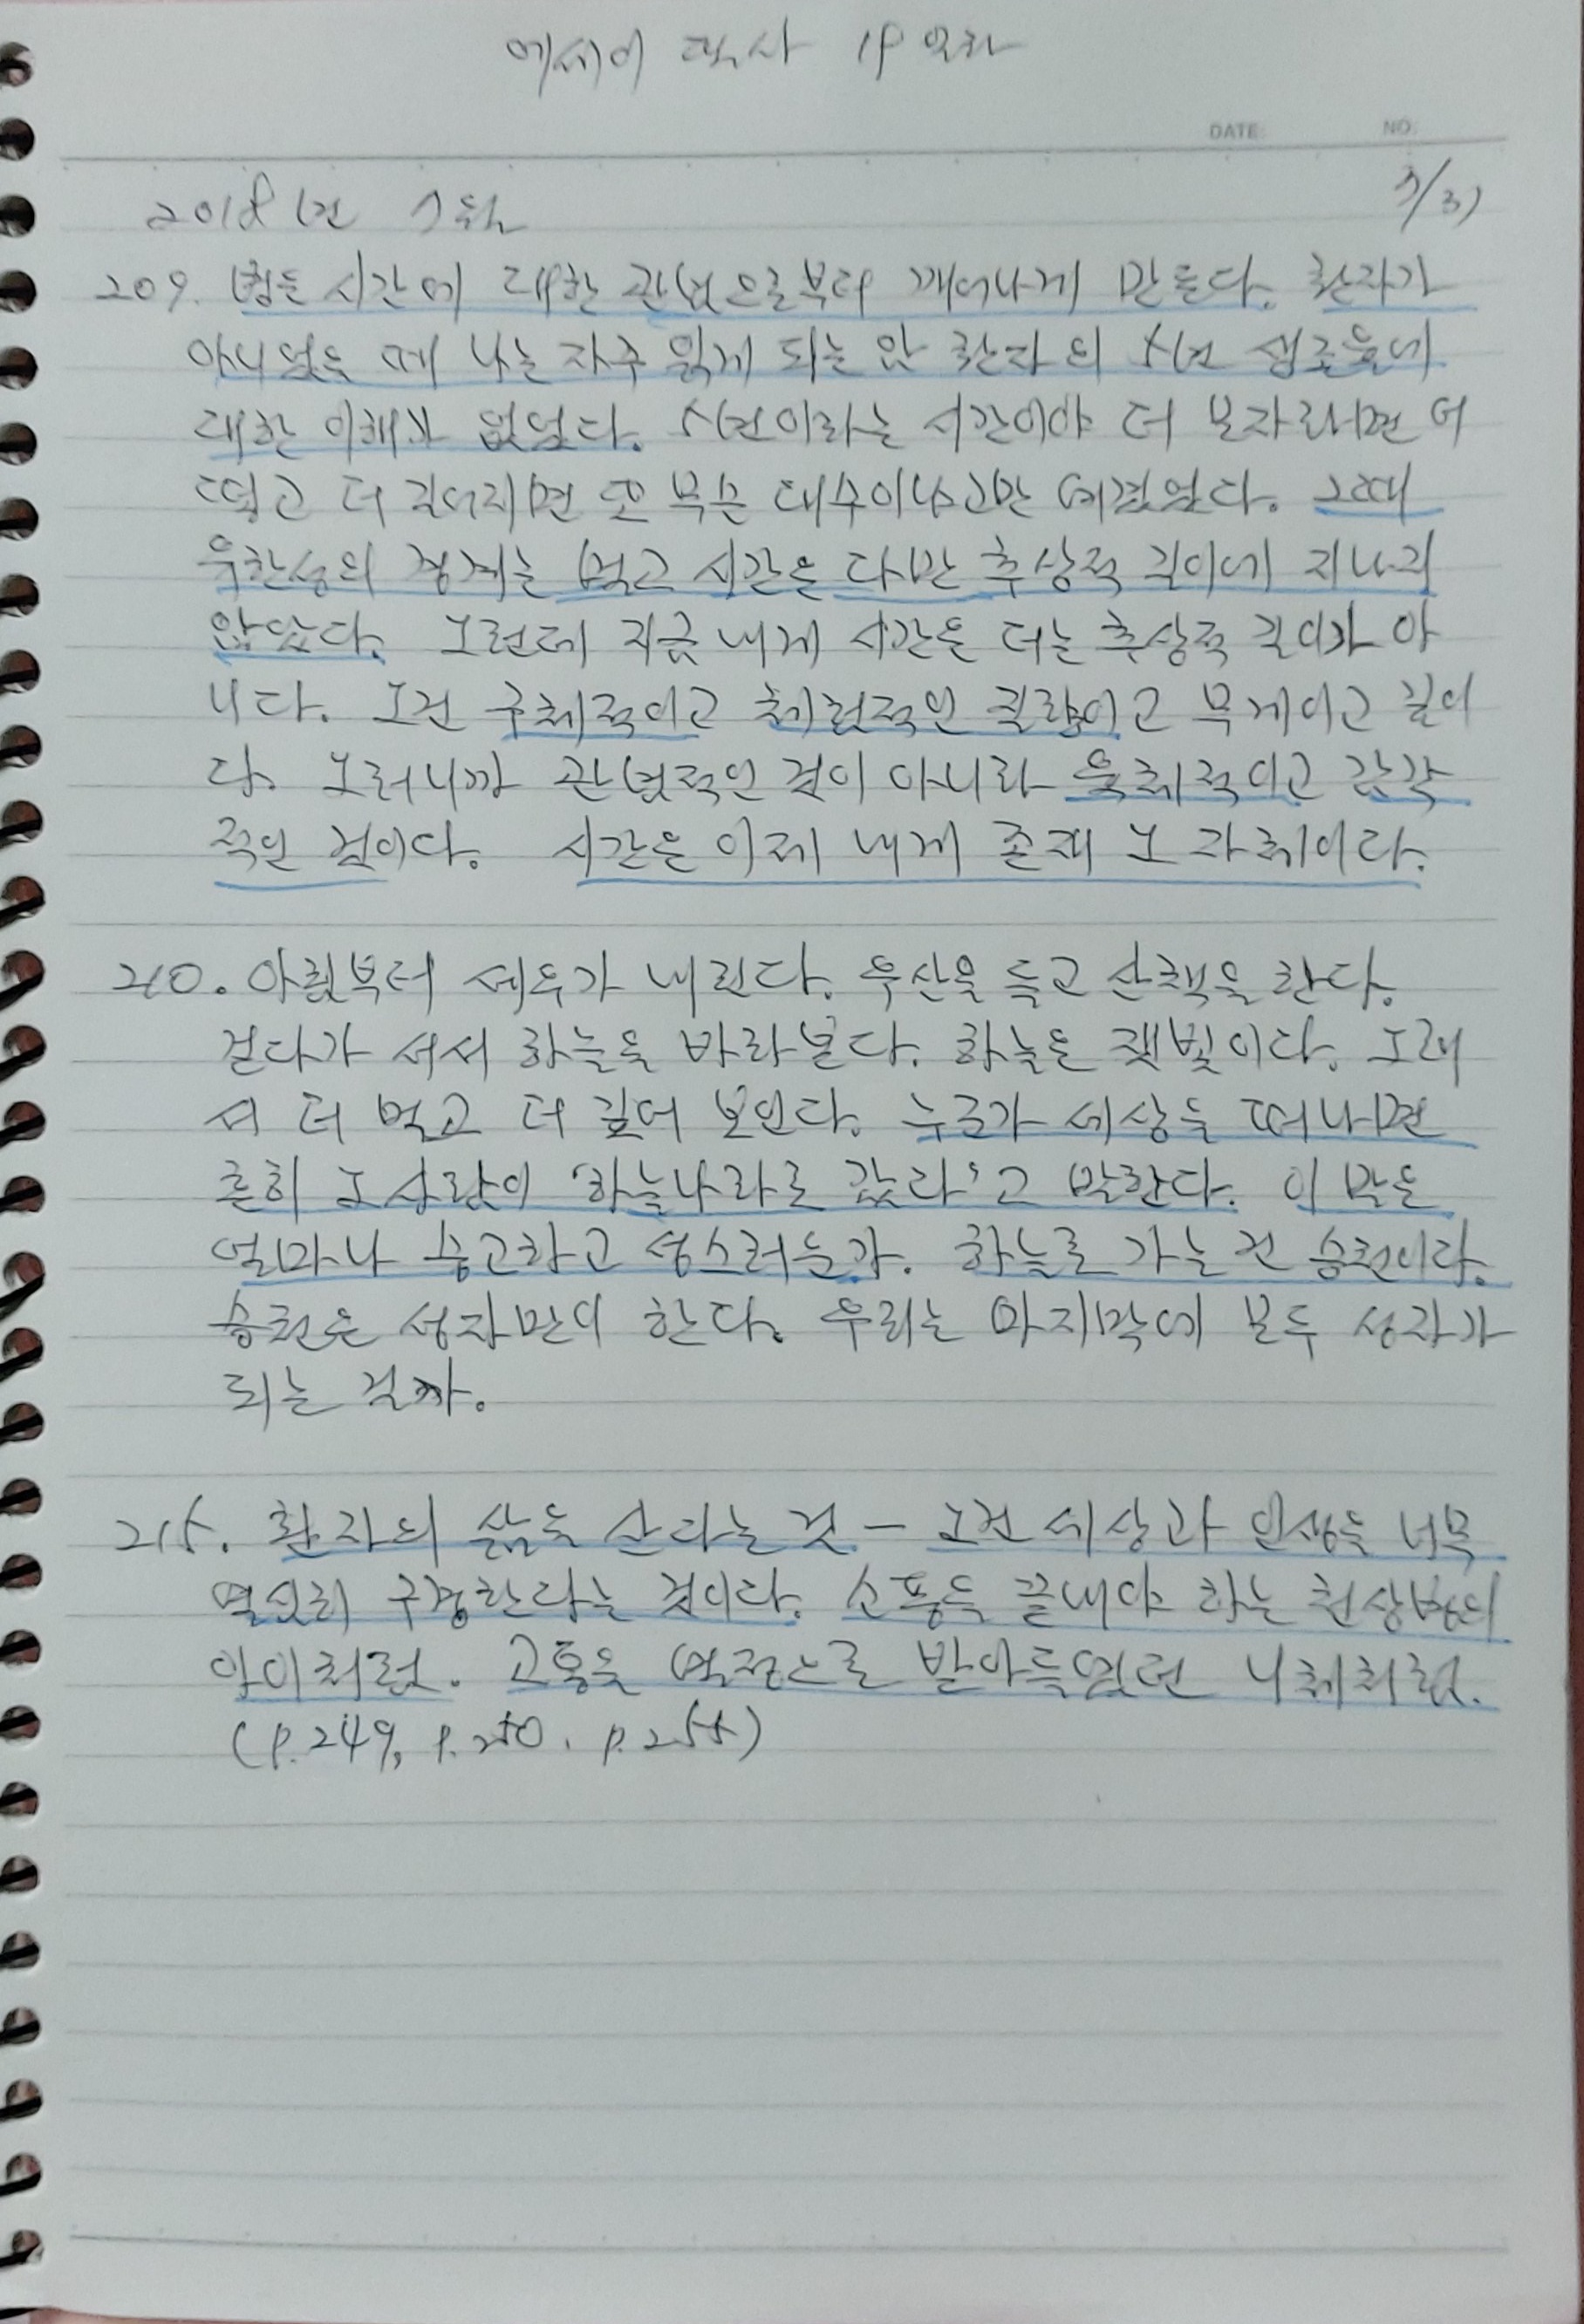 에세이 필사 18일차
DATE: NO:
2018년 7월
7/31
209. 병은 시간에 대한 관념으로부터 깨어나게 만든다. 환자가
아니었을 때 나는 자주 읽게 되는 암 환자의 5년 생존율에
대한 이해가 없었다. 5년이라는 시간이야 더 모자라면 어
떻고 더 길어지면 또 무슨 대수이냐고만 여겼었다. 그때
유한성의 경계는 멀고 시간은 다만 추상적 길이에 지나지
않았다. 그런데 지금 내게 시간은 더는 추상적 길이가 아
니다. 그건 구체적이고 체험적인 질량이고 무게이고 깊이
다. 그러니까 관념적인 것이 아니라 육체적이고 감각
적인 것이다. 시간은 이제 내게 존재 그 자체이다.
210. 아침부터 세우가 내린다. 우산을 들고 산책을 한다.
걷다가 서서 하늘을 바라본다. 하늘은 잿빛이다. 그래
서 더 멀고 더 깊어 보인다. 누군가 세상을 떠나면
흔히 그 사람이 '하늘나라로 갔다'고 말한다. 이 말은
얼마나 숭고하고 성스러운가. 하늘로 가는 건 승천이다.
승천은 성자만이 한다. 우리는 마지막에 모두 성자가
되는 걸까.
215. 환자의 삶을 산다는 것 - 그건 세상과 인생을 너무
열심히 구경한다는 것이다. 소풍을 끝내야 하는 천상병의
아이처럼. 고통을 열정으로 받아들였던 니체처럼.
(p.249, p.250. p.255)